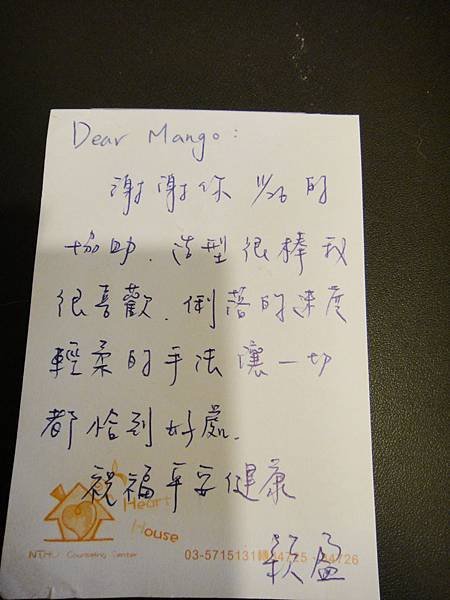 Dear Mango:
謝謝你 11/26 的
協助.造型很棒我
很喜歡.俐落的速度
輕柔的手法讓一切
都恰到好處.
祝福平安健康
Heart
House
NTHU Counseling Center
03-5715131轉34725 - 34726
盈